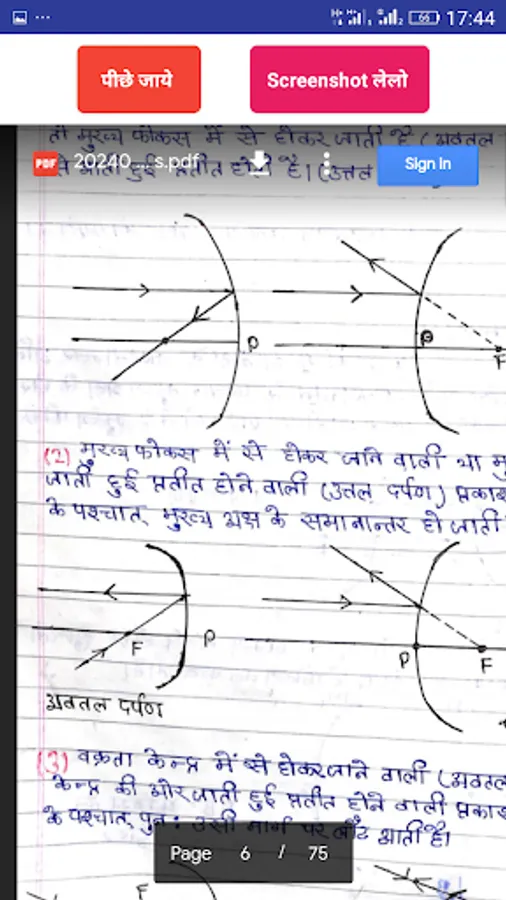 66 17:44
पीछे जाये Screenshot लेलो
तो मुख्य फोकस में से होकर जाती है (अवतल
PDF 20240 ... s.pdf Sign In
आती हुई प्रतीत होती है। (उत्तल
P P F
(2) मुख्य फोकस में से होकर जाने वाली या मु
जाती हुई प्रतीत होने वाली (उत्तल दर्पण) प्रकाश
के पश्चात् मुख्य अक्ष के समानान्तर हो जाती
F P P F
अवतल दर्पण
(3) वक्रता केन्द्र में से होकर जाने वाली (अवतल
केन्द्र की ओर जाती हुई प्रतीत होने वाली प्रकाश
के पश्चात् पुनः उसी मार्ग पर लौट आती है।
Page 6 / 75
F